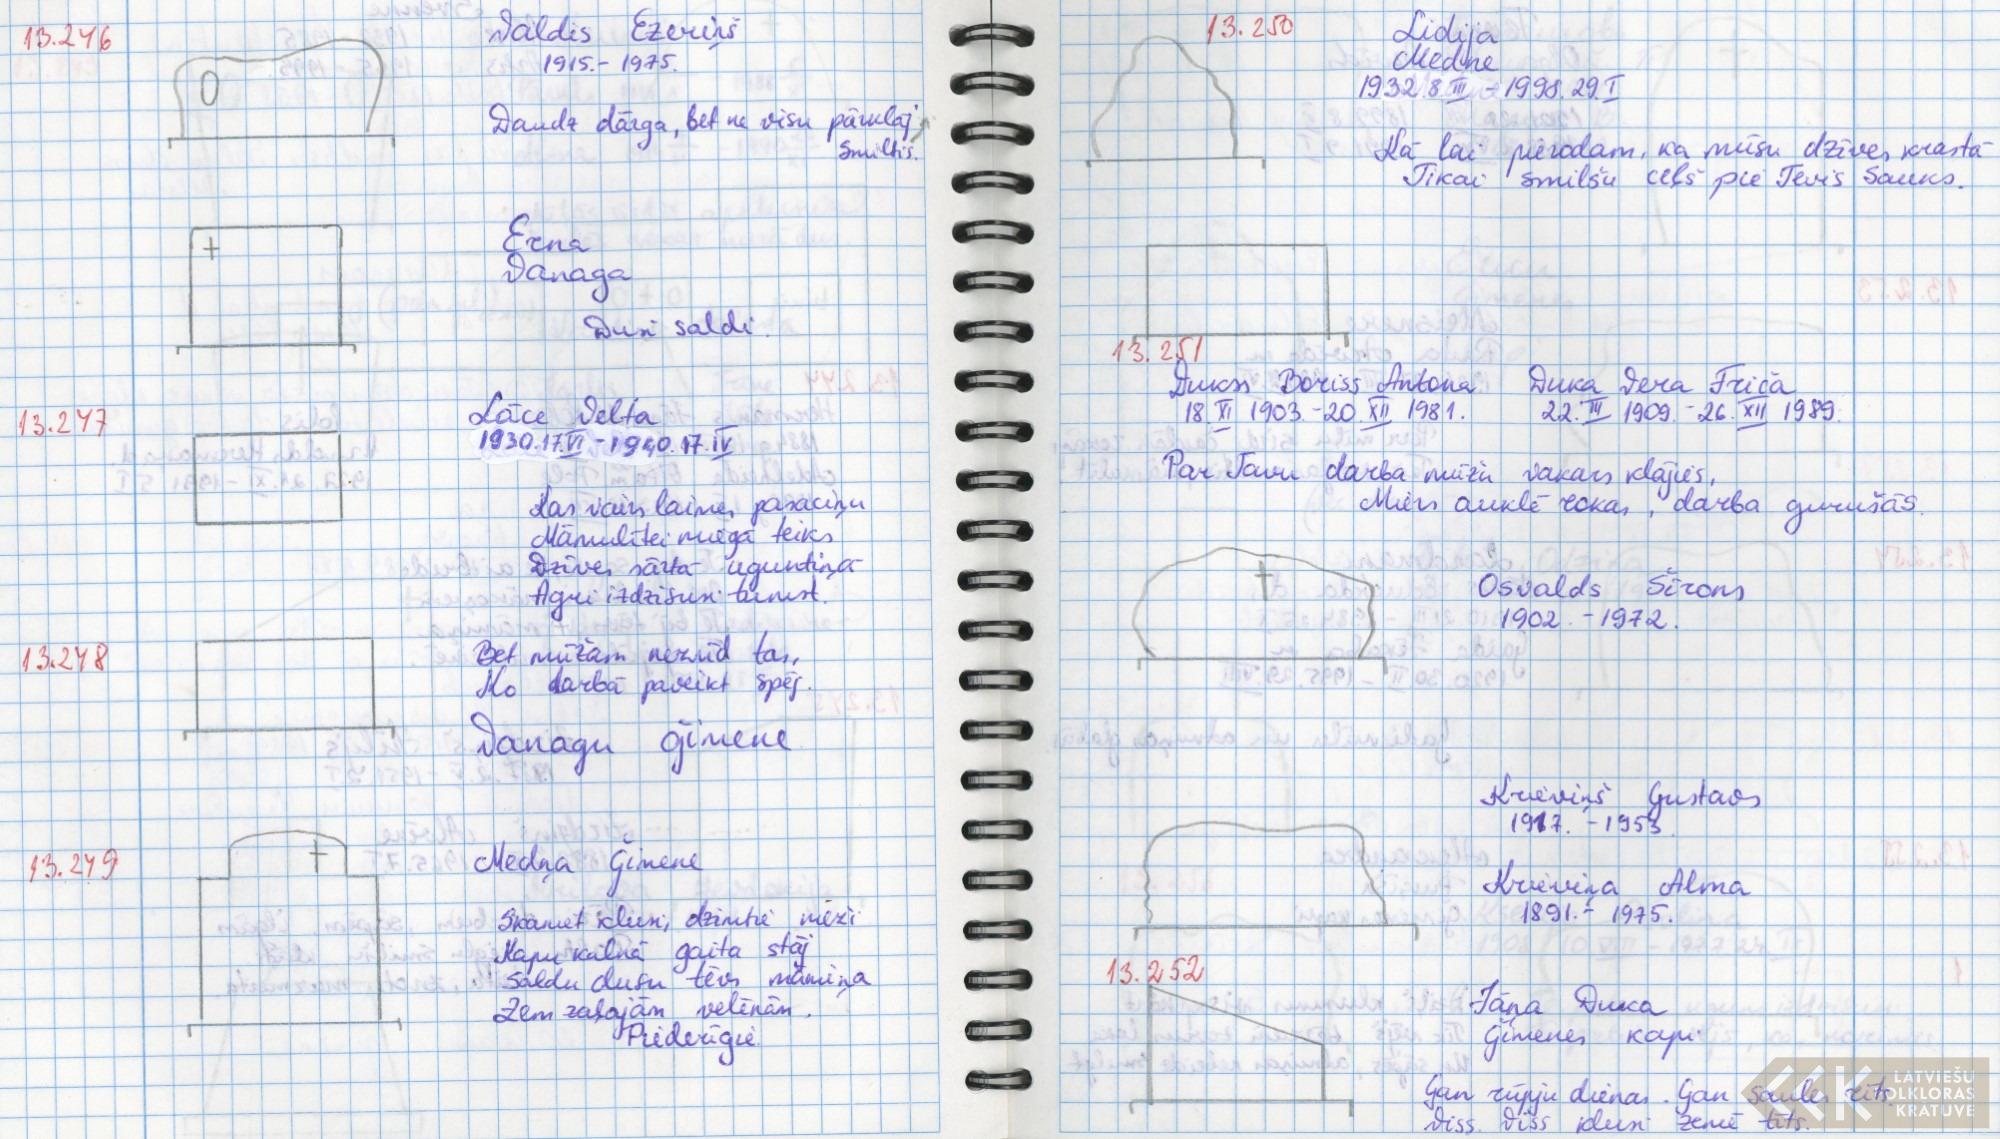 13.246
Valdis Ezeriņš
1915. - 1975.
Daudz dārga, bet ne visu pārklāj
smiltis.
Erna
Vanaga
Dusi saldi.
13.247
Lāce Velta
1930.17.VI - 1940.17.IV
Kas vairs laimes pasaciņu
Māmulītei miegā teiks
Dzīves sārtā uguntiņā
Agri izdzisusi tumst.
13.248
Bet mūžam nezūd tas,
Ko darbā paveikt spēj.
Vanagu ģimene
13.249
Medņa Ģimene
Skaniet klusi, dzimtie mēži
Kapu kalnā gaita stāj
Saldu dusu tēvs māmiņa
Zem zaļajām velēnām.
Piederīgie.
13.250
Lidija
Medne
1932.8.III - 1998.29.I
Kā lai pierodam, ka mūsu dzīves krastā
Tikai smilšu ceļš pie Tevis sauks.
13.251
Dukss Boriss Antona Duka Vera Friča
18.XI 1903. - 20.XII 1981. 22.III 1909. - 26.XII 1989.
Par Tavu darba mūžu vakars klājies,
Miers auklē rokas, darba gurušās.
Osvalds Sīrons
1902. - 1972.
Krieviņš Gustavs
1917. - 1953.
Krieviņa Alma
1891. - 1975.
13.252
Jāņa Duka
Ģimenes kapi
Gan rūpju dienas. Gan saules rīts.
Viss. Viss klusi zemē tīts.
LATVIEŠU
FOLKLORAS
KRATUVE